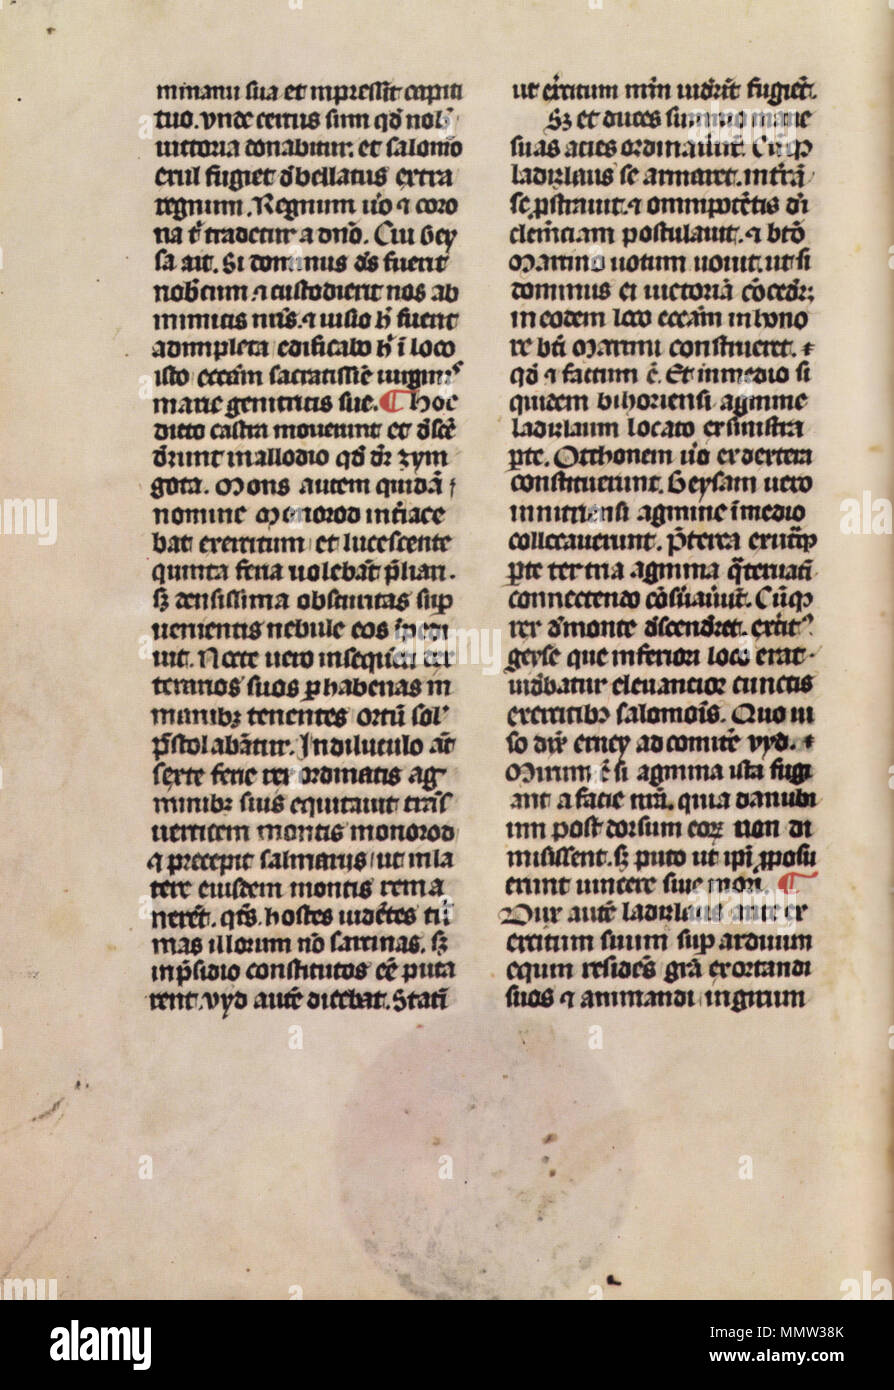 minanu sua et inpressit capiti
tuo. vnde certus sum qd nob
uictoria donabitur. et salomo
exul fugiet dbellatus extra
regnum. Regnum uo ⁊ coro
na t tradetur a dno. Cui Gey
sa ait. Si dominus ds fuerit
nobcum ⁊ custodierit nos ab
inimicis nris. ⁊ uisio h fuerit
adinpleta edificabo h i loco
isto eccam sacratissie uirginis
marie genitricis sue. ¶ Hoc
dicto castra mouerunt et dsce
drunt in allodio qd dr zym
gota. Mons autem quida
nomine Monorod intiace
bat exercitum et lucescente
quinta feria uolebat plian.
sz densissima obscuritas sup
uenientis nebule eos ipedi
uit. Nocte uero insequenti cet
teranos suos p habenas in
manibz tenentes ortu sol
pstolabantur. In diluculo at
serte ferie rex ordinatis ag
minibz suis equitauit trans
uerticem montis monorod
⁊ precepit salmarijs ut in la
tere eiusdem montis rema
neret. qts. hostes uidetes tur
mas illorum no sarcinas. sz
in psidio constitutos ee puta
rent. vyd aute dicebat. Stati
ut exitum mrm uidrit fugiet.
Sz et duces summo mane
suas acies ordinauut. Cuqp
ladizlaus se armaret. intra
se pstrauit. ⁊ omnipotetis di
clemciam postulauit. ⁊ bto
Martino uotum uouit. ut si
dominus ei uictoria cocedr;
in eodem loco eccam in hono
re bti Martini construeret. ⁊
qd ⁊ factum e. Et in medio si
quidem bihoriensi agmine
ladizlaum locato ex sinistra
pte. Otthonem uo ex dextera
constituerunt. Geysam uero
in nitriensi agmine i medio
collocauerunt. pterea ex utqp
pte terna agmina qternati
connectendo cosuauut. Cuqp
rex d monte dscendret. exitus
geyse que in feriori loco erat.
uidbatur eleuancior cunctis
exercitibz salomois. Quo ui
so dix erney ad comite vyd. ⁊
Mirum e si agmina ista fugi
ant a facie nra. quia danubi
um post dorsum eorz non di
misissent. sz puto ut ipi pposu
erunt uincere siue mori. ¶
Dux aute ladizlaus ante ex
ercitum suum sup arduum
equm resides gra exortandi
suos ⁊ animandi in girum
alamy
Image ID: MMW38K
www.alamy.com